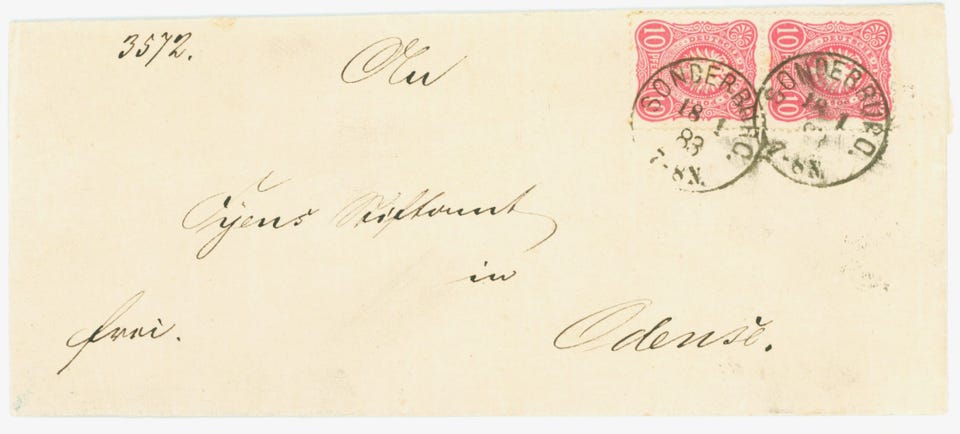 3572.
An
Fyens Stiftamt
in
Odense.
frei.
10 DEUTSCHE 10
10 DEUTSCHE 10
SONDERBURG.
18 1
83
7-8N.
SONDERBURG.
18 1
83
7-8N.